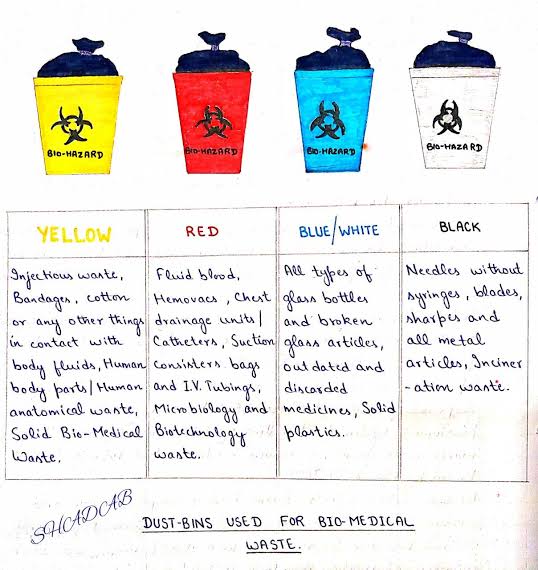 BIO-HAZARD
BIO-HAZARD
BIO-HAZARD
BIO-HAZARD
YELLOW
Injectious waste,
Bandages, cotton
or any other things
in contact with
body fluids, Human
body parts/Human
anatomical waste,
Solid Bio-Medical
Waste.
RED
Fluid blood,
Hemovacs, Chest
drainage units/
Catheters, Suction
consisters bags
and I.V. Tubings,
Microbiology and
Biotechnology
waste.
BLUE/WHITE
All types of
glass bottles
and broken
glass articles,
outdated and
discarded
medicines, Solid
plastics.
BLACK
Needles without
syringes, blades,
sharpes and
all metal
articles, Inciner
-ation waste.
SHADAB
DUST-BINS USED FOR BIO-MEDICAL
WASTE.